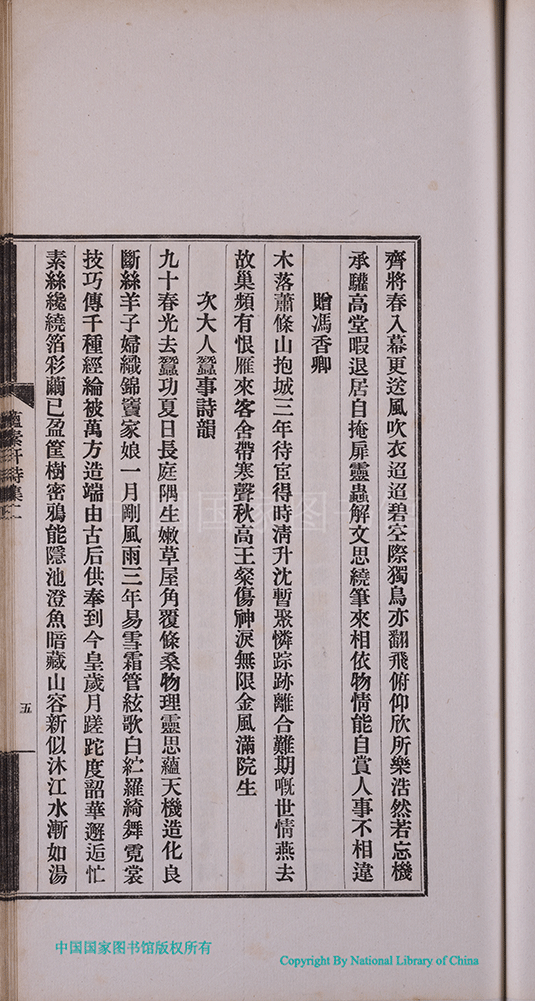 齊將春入幕更送風吹衣迢迢碧空際獨鳥亦翻飛俯仰欣所樂浩然若忘機
承驩高堂暇退居自掩扉靈蟲解文思繞筆來相依物情能自賞人事不相違
贈馮香卿
木落蕭條山抱城三年待宦得時淸升沈暫聚憐踪跡離合難期嘅世情燕去
故巢頻有恨雁來客舍帶寒聲秋高王粲傷神淚無限金風滿院生
次大人蠶事詩韻
九十春光去蠶功夏日長庭隅生嫩草屋角覆條桑物理靈思蘊天機造化良
斷絲羊子婦織錦竇家娘一月剛風雨三年易雪霜管絃歌白紵羅綺舞霓裳
技巧傳千種經綸被萬方造端由古后供奉到今皇歲月蹉跎度韶華邂逅忙
素絲纔繞箔彩繭已盈筐樹密鴉能隱池澄魚暗藏山容新似沐江水漸如湯
蘊素軒詩集二
五
中国国家图书馆
中国国家图书馆版权所有
Copyright By National Library of China